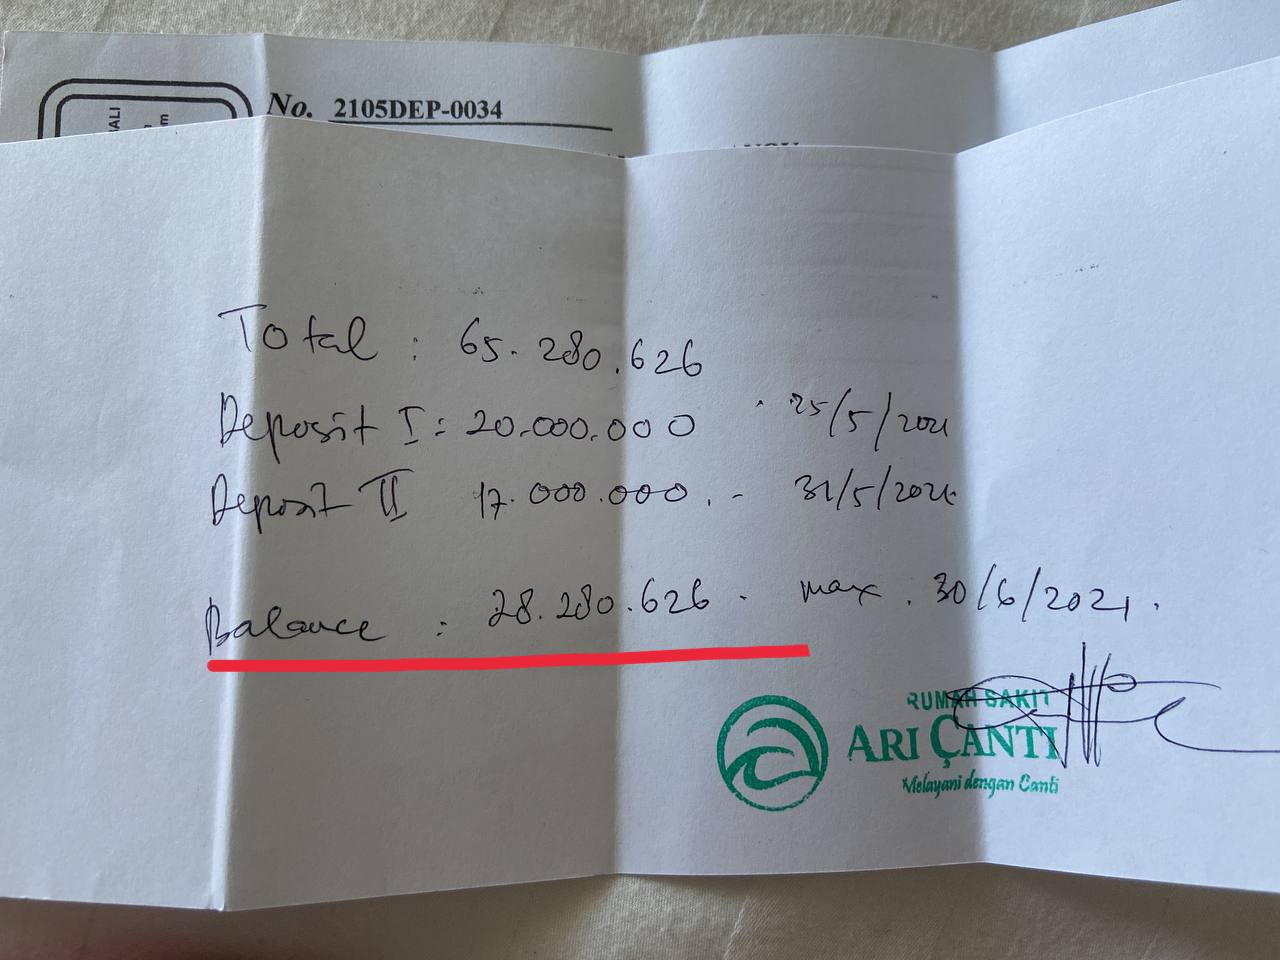 No. 2105DEP-0034
Total : 65.280.626
Deposit I : 20.000.000 25/5/2021
Deposit II 17.000.000.- 31/5/2021
Balance : 28.280.626. max. 30/6/2021.
RUMAH SAKIT
ARI ÇANTI
Melayani dengan Canti